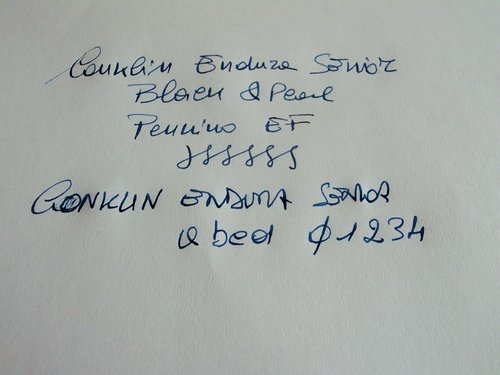 Conklin Endura Senior
Black & Pearl
Pennino EF
SSSSSS
CONKLIN ENDURA SENIOR
a bcd Ø1234